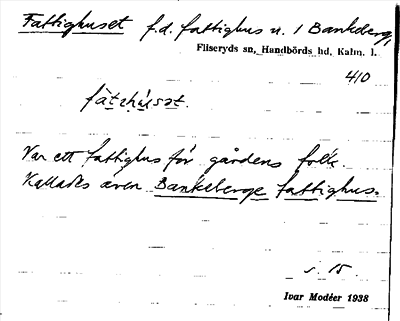 Fattighuset f.d. fattighus u. 1 Bankeberg,
Fliseryds sn, Handbörds hd, Kalm. l.
410
Var ett fattighus för gårdens folk.
Kallades även Bankeberge fattighus.
s. 15.
Ivar Modéer 1938